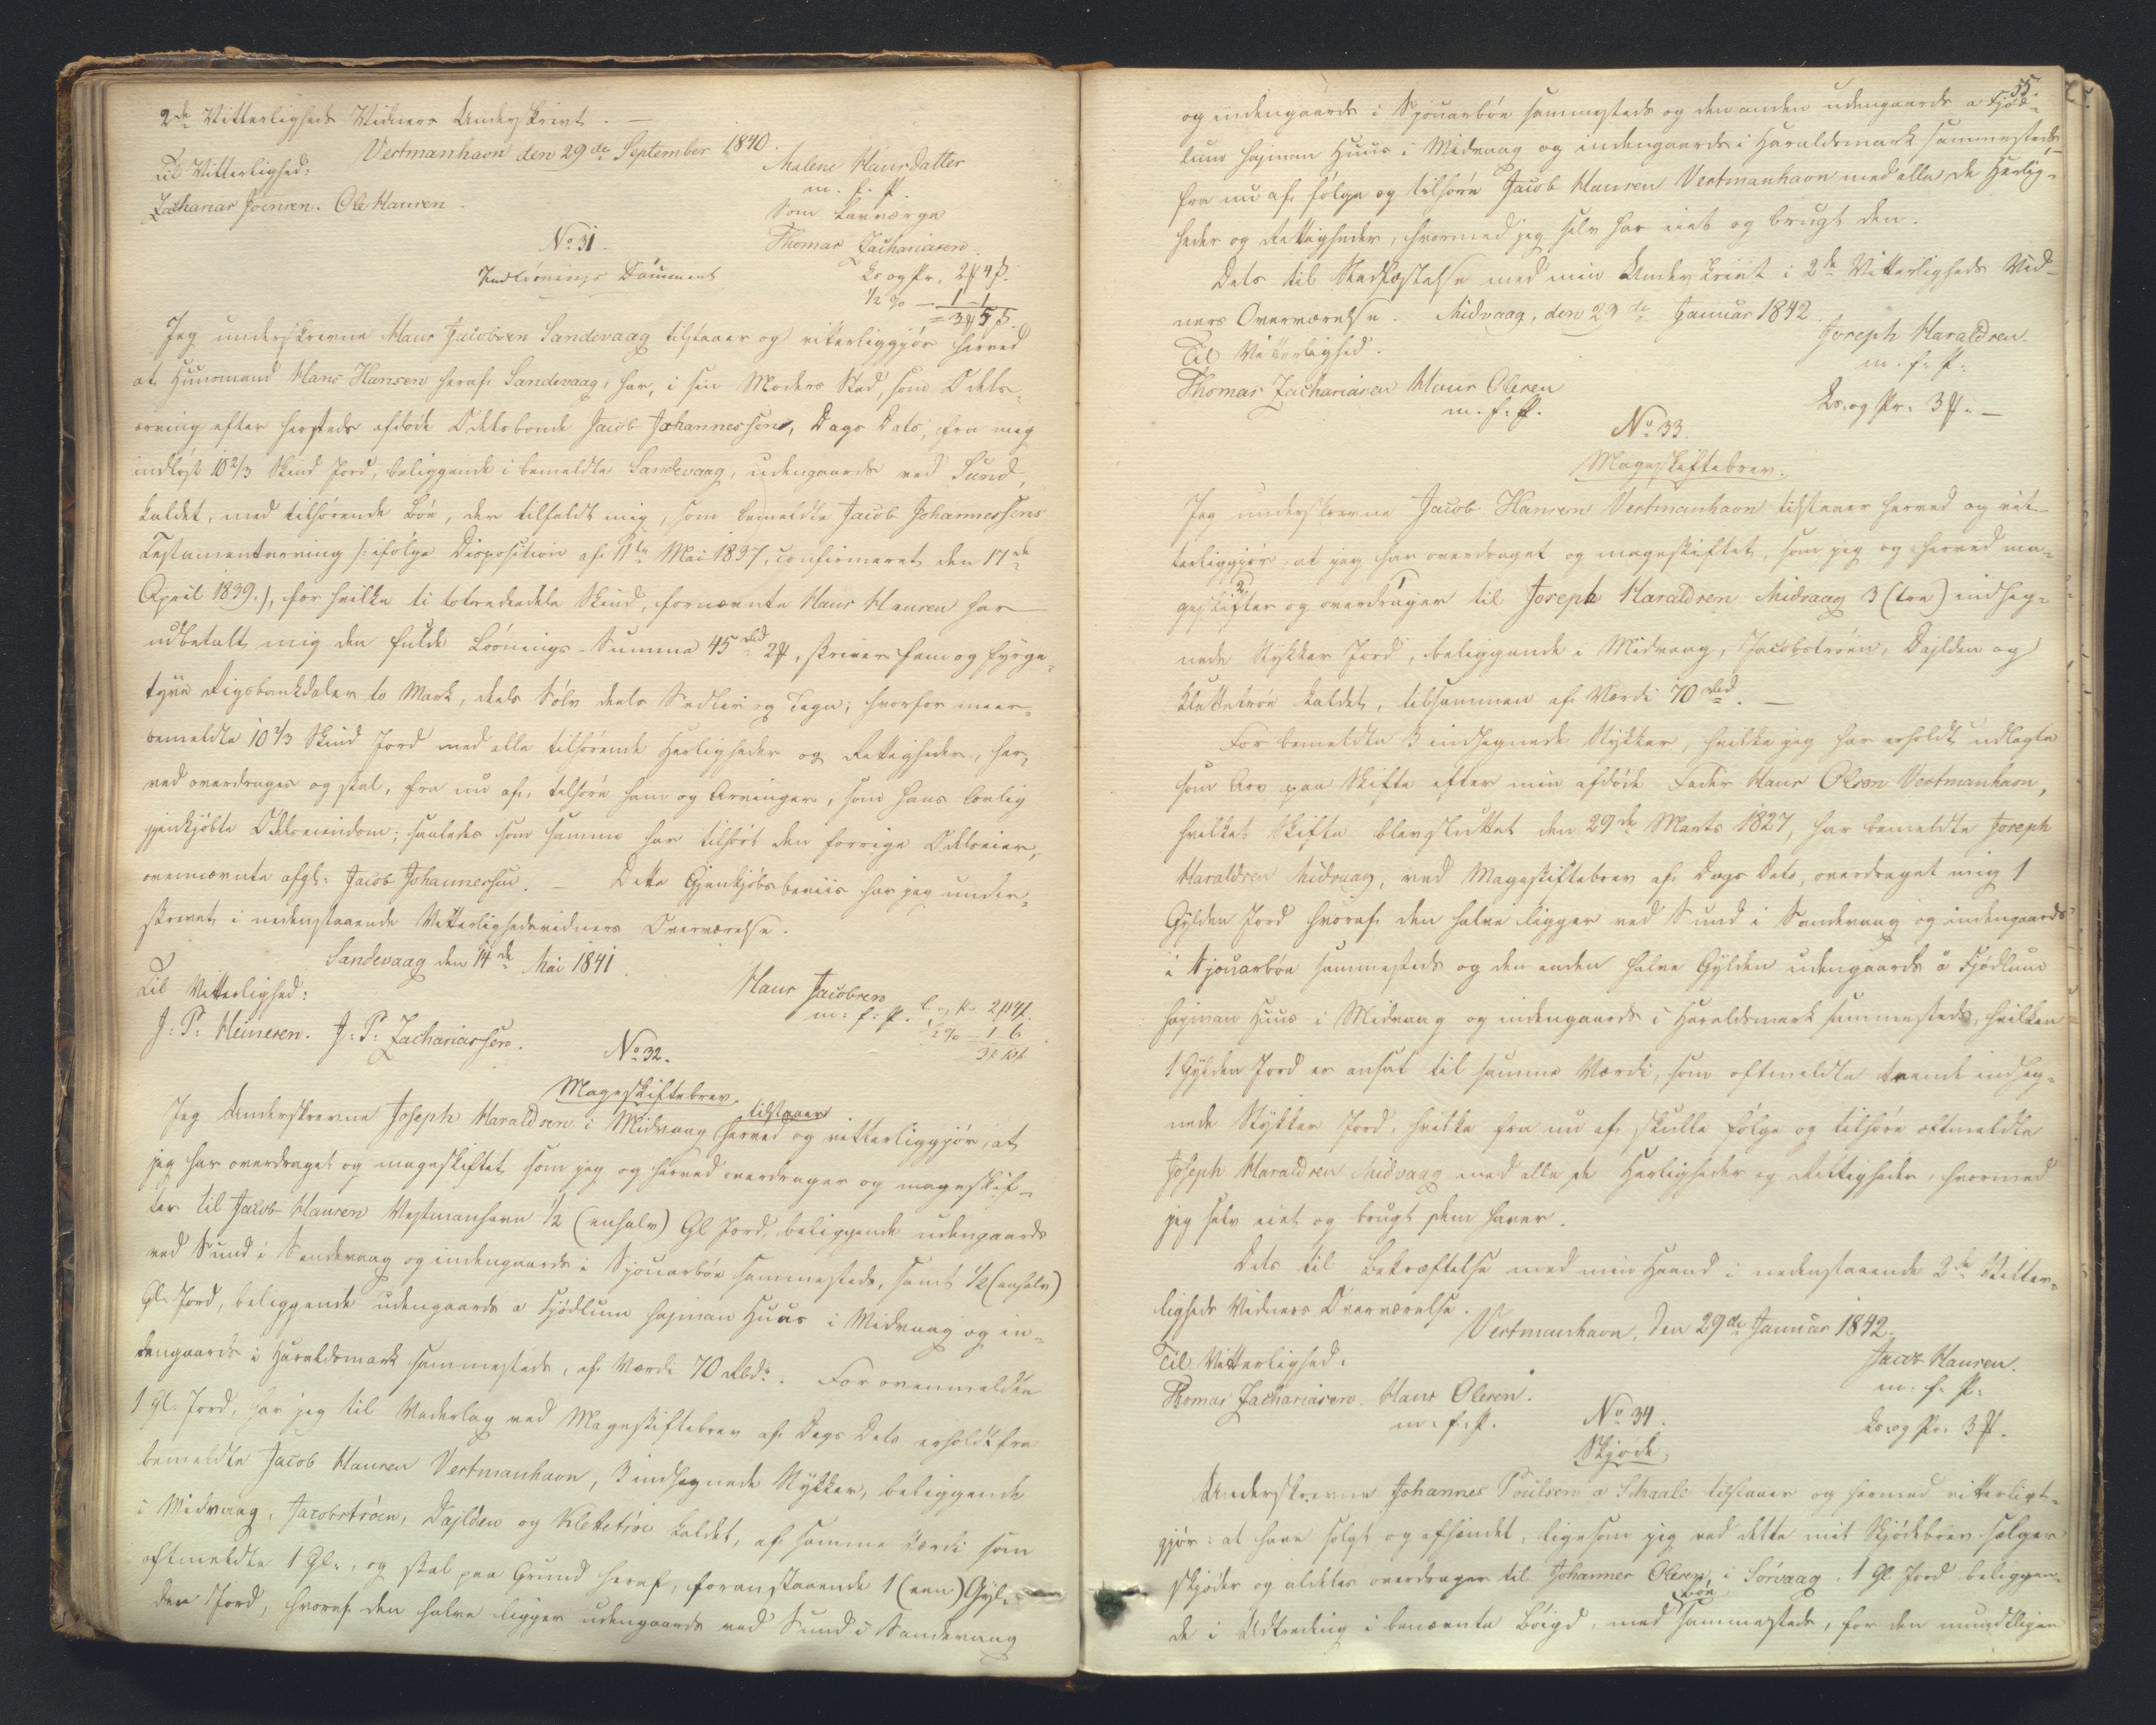 2de Vitterligheds Vidners Underskrivt. —
Vestmanhavn den 29de September 1840.
Til Vitterlighed:
Zacharias Joensen. Ole Hansen.
Malene Hansdatter
m. f. P.
Som Laugværge
Thomas Zachariasen.
No 31.
Indløsnings Document
Læs og Pr. 2 4 ß.
1/2 % — 1 — 1
= 3 5 ß.
Jeg underskrevne Hans Jacobsen Sandevaag tilstaaer og vitterliggjør herved
at Huusmand Hans Hansen heraf Sandevaag, har, i sin Moders Sted, som Odels-
arving efter hersteds afdøde Odelsbonde Jacob Johannessen, Dags Dato, fra mig
indløst 10 2/3 Skind Jord, beliggende i bemeldte Sandevaag, udengaards ved Sund,
kaldet, med tilhørende Bøe, der tilfaldt mig, som bemeldte Jacob Johannessens
Testamentarving /: ifølge Disposition af 11te Mai 1837, confirmeret den 17de
April 1839.), for hvilke ti totrediedele Skind, fornævnte Hans Hansen har
udbetalt mig den fulde Løsnings-Summa 45 rbd 2 , skriver fem og fyrge-
tyve Rigsbankdaler to Mark, deels Sølv deels Sedler og Tegn; hvorfor meer-
bemeldte 10 2/3 Skind Jord med alle tilhørende Herligheder og Rettigheder, her-
ved overdrages og skal, fra nu af, tilhøre ham og Arvinger, som hans lovlig
gjenkjøbte Odelseiendom; saaledes som samme har tilhørt den forrige Odelseier,
ovennævnte afgl: Jacob Johannessen. — Dette Gjenkjøbsbeviis har jeg under-
skrevet i nedenstaaende Vitterlighedsvidners Overværelse.
Sandevaag den 14de Mai 1841.
Til Vitterlighed:
J: P: Heinesen. J: P: Zachariassen.
Hans Jacobsen
m: f: P.
L. og Pr. 2 4
1/2 % — 1 6
3
No 32.
Mageskiftebrev.
Jeg Underskrevne Joseph Haraldsen i Midvaag tilstaaer herved og vitterliggjør, at
jeg har overdraget og mageskiftet som jeg og herved overdrager og mageskif-
ter til Jacob Hansen Vestmanhavn 1/2 (enhalv) Gl Jord, beliggende udengaards
ved Sund i Sandevaag og indengaards i Sjouarbøe sammesteds, samt 1/2 (enhalv)
Gl. Jord, beliggende udengaards a Fjødlum hajman Huus i Midvaag og in-
dengaards i Haraldsmark sammesteds, af Værdi 70 Rbd:. For ovenmeldte
1 Gl. Jord, har jeg til Vederlag ved Mageskiftebrev af Dags Dato erholdt fra
bemeldte Jacob Hansen Vestmanhavn, 3 indhegnede Stykker, beliggende
i Midvaag, Jacobstrøen, Dajlden og Klettetrøe kaldet, af samme Værdi som
oftmeldte 1 Gl., og skal paa Grund heraf, foranstaaende 1 (een) Gyl-
den Jord, hvoraf den halve ligger udengaards ved Sund i Sandevaag
55.
og indengaards i Sjouarbøe sammesteds og den anden udengaards a Fjød-
lum hajman Huus i Midvaag og indengaards i Haraldsmark sammesteds,
fra nu af følge og tilhøre Jacob Hansen Vestmanhavn med alle de Herlig-
heder og Rettigheder, hvormed jeg selv har eiet og brugt den.
Dets til Stadfæstelse med min Underskrivt i 2de Vitterligheds Vid-
ners Overværelse. Midvaag, den 29de Januar 1842.
Til Vitterlighed.
Thomas Zachariasen Hans Olesen
m. f. P.
Joseph Haraldsen.
m. f. P.
Læs. og Pr. 3 . —
No 33.
Mageskiftebrev.
Jeg underskrevne Jacob Hansen Vestmanhavn tilstaaer herved og vit-
terliggjør, at jeg har overdraget og mageskiftet, som jeg og herved ma-
geskifter og overdrager til Joseph Haraldsen Midvaag 3 (tre) indheg-
nede Stykker Jord, beliggende i Midvaag, Jacobstrøen, Dajlden og
Klettetrøe kaldet, tilsammen af Værdi 70 rbd. —
For bemeldte 3 indhegnede Stykker, hvilke jeg har erholdt udlagte
som Arv paa Skifte efter min afdøde Fader Hans Olsen Vestmanhavn,
hvilket Skifte blev sluttet den 29de Marts 1827, har bemeldte Joseph
Haraldsen Midvaag, ved Mageskiftebrev af Dags Dato, overdraget mig 1
Gylden Jord hvoraf den halve ligger ved Sund i Sandevaag og indengaards
i Sjouarbøe sammesteds og den anden halve Gylden udengaards a Fjødlum
hajman Huus i Midvaag og indengaards i Haraldsmark sammesteds, hvilken
1 Gylden Jord er ansat til samme Værdi, som oftmeldte trende indheg-
nede Stykker Jord, hvilke fra nu af skulle følge og tilhøre oftmeldte
Joseph Haraldsen Midvaag med alle de Herligheder og Rettigheder, hvormed
jeg selv eiet og brugt dem haver.
Dets til Bekræftelse med min Haand i nedenstaaende 2de Vitter-
ligheds Vidners Overværelse.
Vestmanhavn, den 29de Januar 1842.
Til Vitterlighed.
Thomas Zachariasen. Hans Olesen.
m. f. P.
Jacob Hansen.
m. f. P.
Læs. og Pr. 3 .
No 34.
Skjøde.
Underskrevne Johannes Poulsen a Skaale tilstaaer og hermed vitterligt-
gjør: at have solgt og afhændet, ligesom jeg ved dette mit Skjødebrev sælger
skjøder og aldeles overdrager til Johannes Olesen, i Sørvaag, 1 Gl Jord beliggen-
de i Udtreding i benævnte Bøigd, med Bøe sammesteds, for den mundtligen